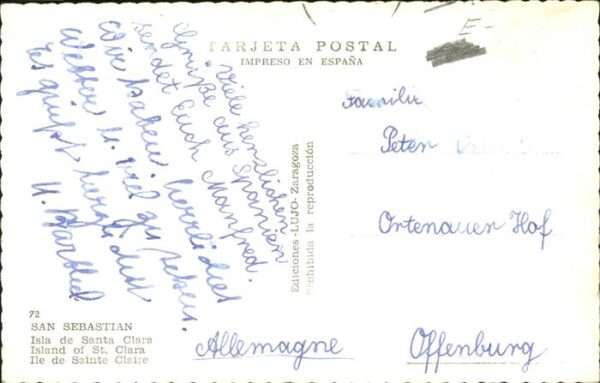 TARJETA POSTAL
IMPRESO EN ESPAÑA
E-
Viele herzlichen
Grüße aus Spanien
sendet Euch Manfred.
Wir haben herrliches
Wetter u. viel zu sehen.
Es grüßt herzlichst
u.
Familie
Peter
Ortenauer Hof
Offenburg
Allemagne
Ediciones-LUJO-Zaragoza
Prohibida la reproducción
72
SAN SEBASTIAN
Isla de Santa Clara
Island of St. Clara
Ile de Sainte Claire